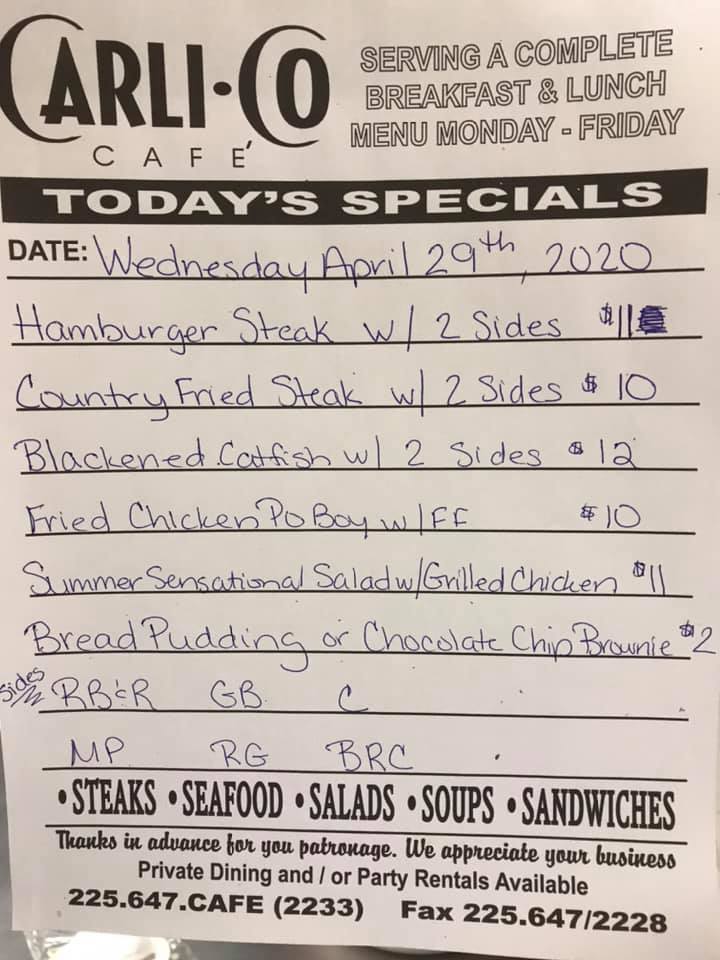 CARLI·CO
CAFÉ
SERVING A COMPLETE
BREAKFAST & LUNCH
MENU MONDAY - FRIDAY
TODAY'S SPECIALS
DATE: Wednesday April 29th, 2020
Hamburger Steak w/ 2 Sides $11
Country Fried Steak w/ 2 Sides $10
Blackened Catfish w/ 2 Sides $12
Fried Chicken Po Boy w/FF $10
Summer Sensational Salad w/Grilled Chicken $11
Bread Pudding or Chocolate Chip Brownie $2
Sides RB&R GB C
MP RG BRC
•STEAKS •SEAFOOD •SALADS •SOUPS •SANDWICHES
Thanks in advance for you patronage. We appreciate your business
Private Dining and / or Party Rentals Available
225.647.CAFE (2233) Fax 225.647/2228